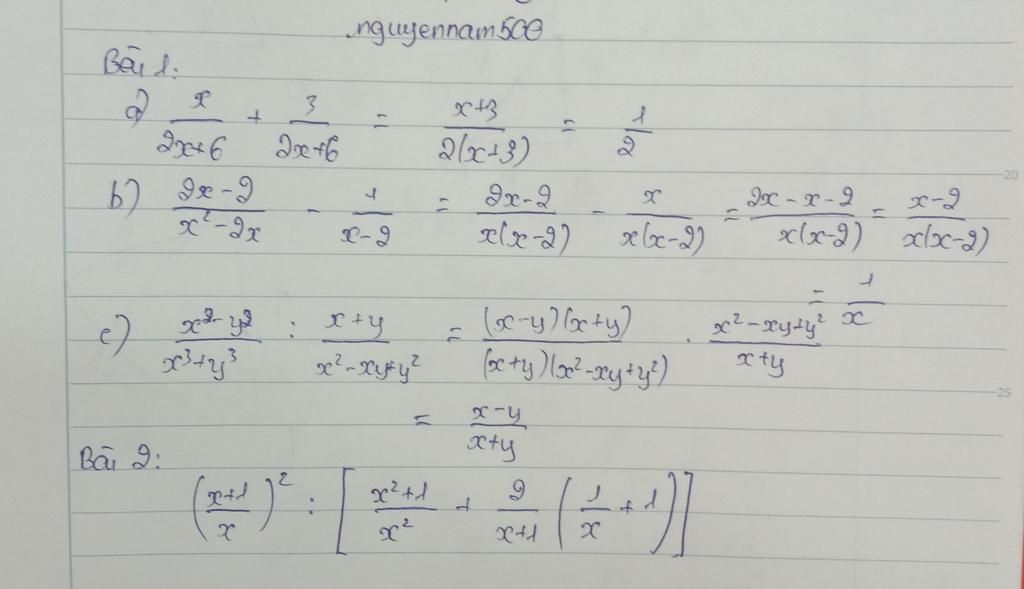 nguyennam500
Bài 1:
a) x/(2x+6) + 3/(2x+6) = (x+3)/(2(x+3)) = 1/2
b) (2x-2)/(x²-2x) - 1/(x-2) = (2x-2)/(x(x-2)) - x/(x(x-2)) = (2x-x-2)/(x(x-2)) = (x-2)/(x(x-2))
= 1/x
c) (x²-y²)/(x³+y³) : (x+y)/(x²-xy+y²) = ((x-y)(x+y))/((x+y)(x²-xy+y²)) . (x²-xy+y²)/(x+y)
= (x-y)/(x+y)
Bài 2:
((x+1)/x)² : [(x²+1)/x² + 2/(x+1) (1/x + 1)]
20
25